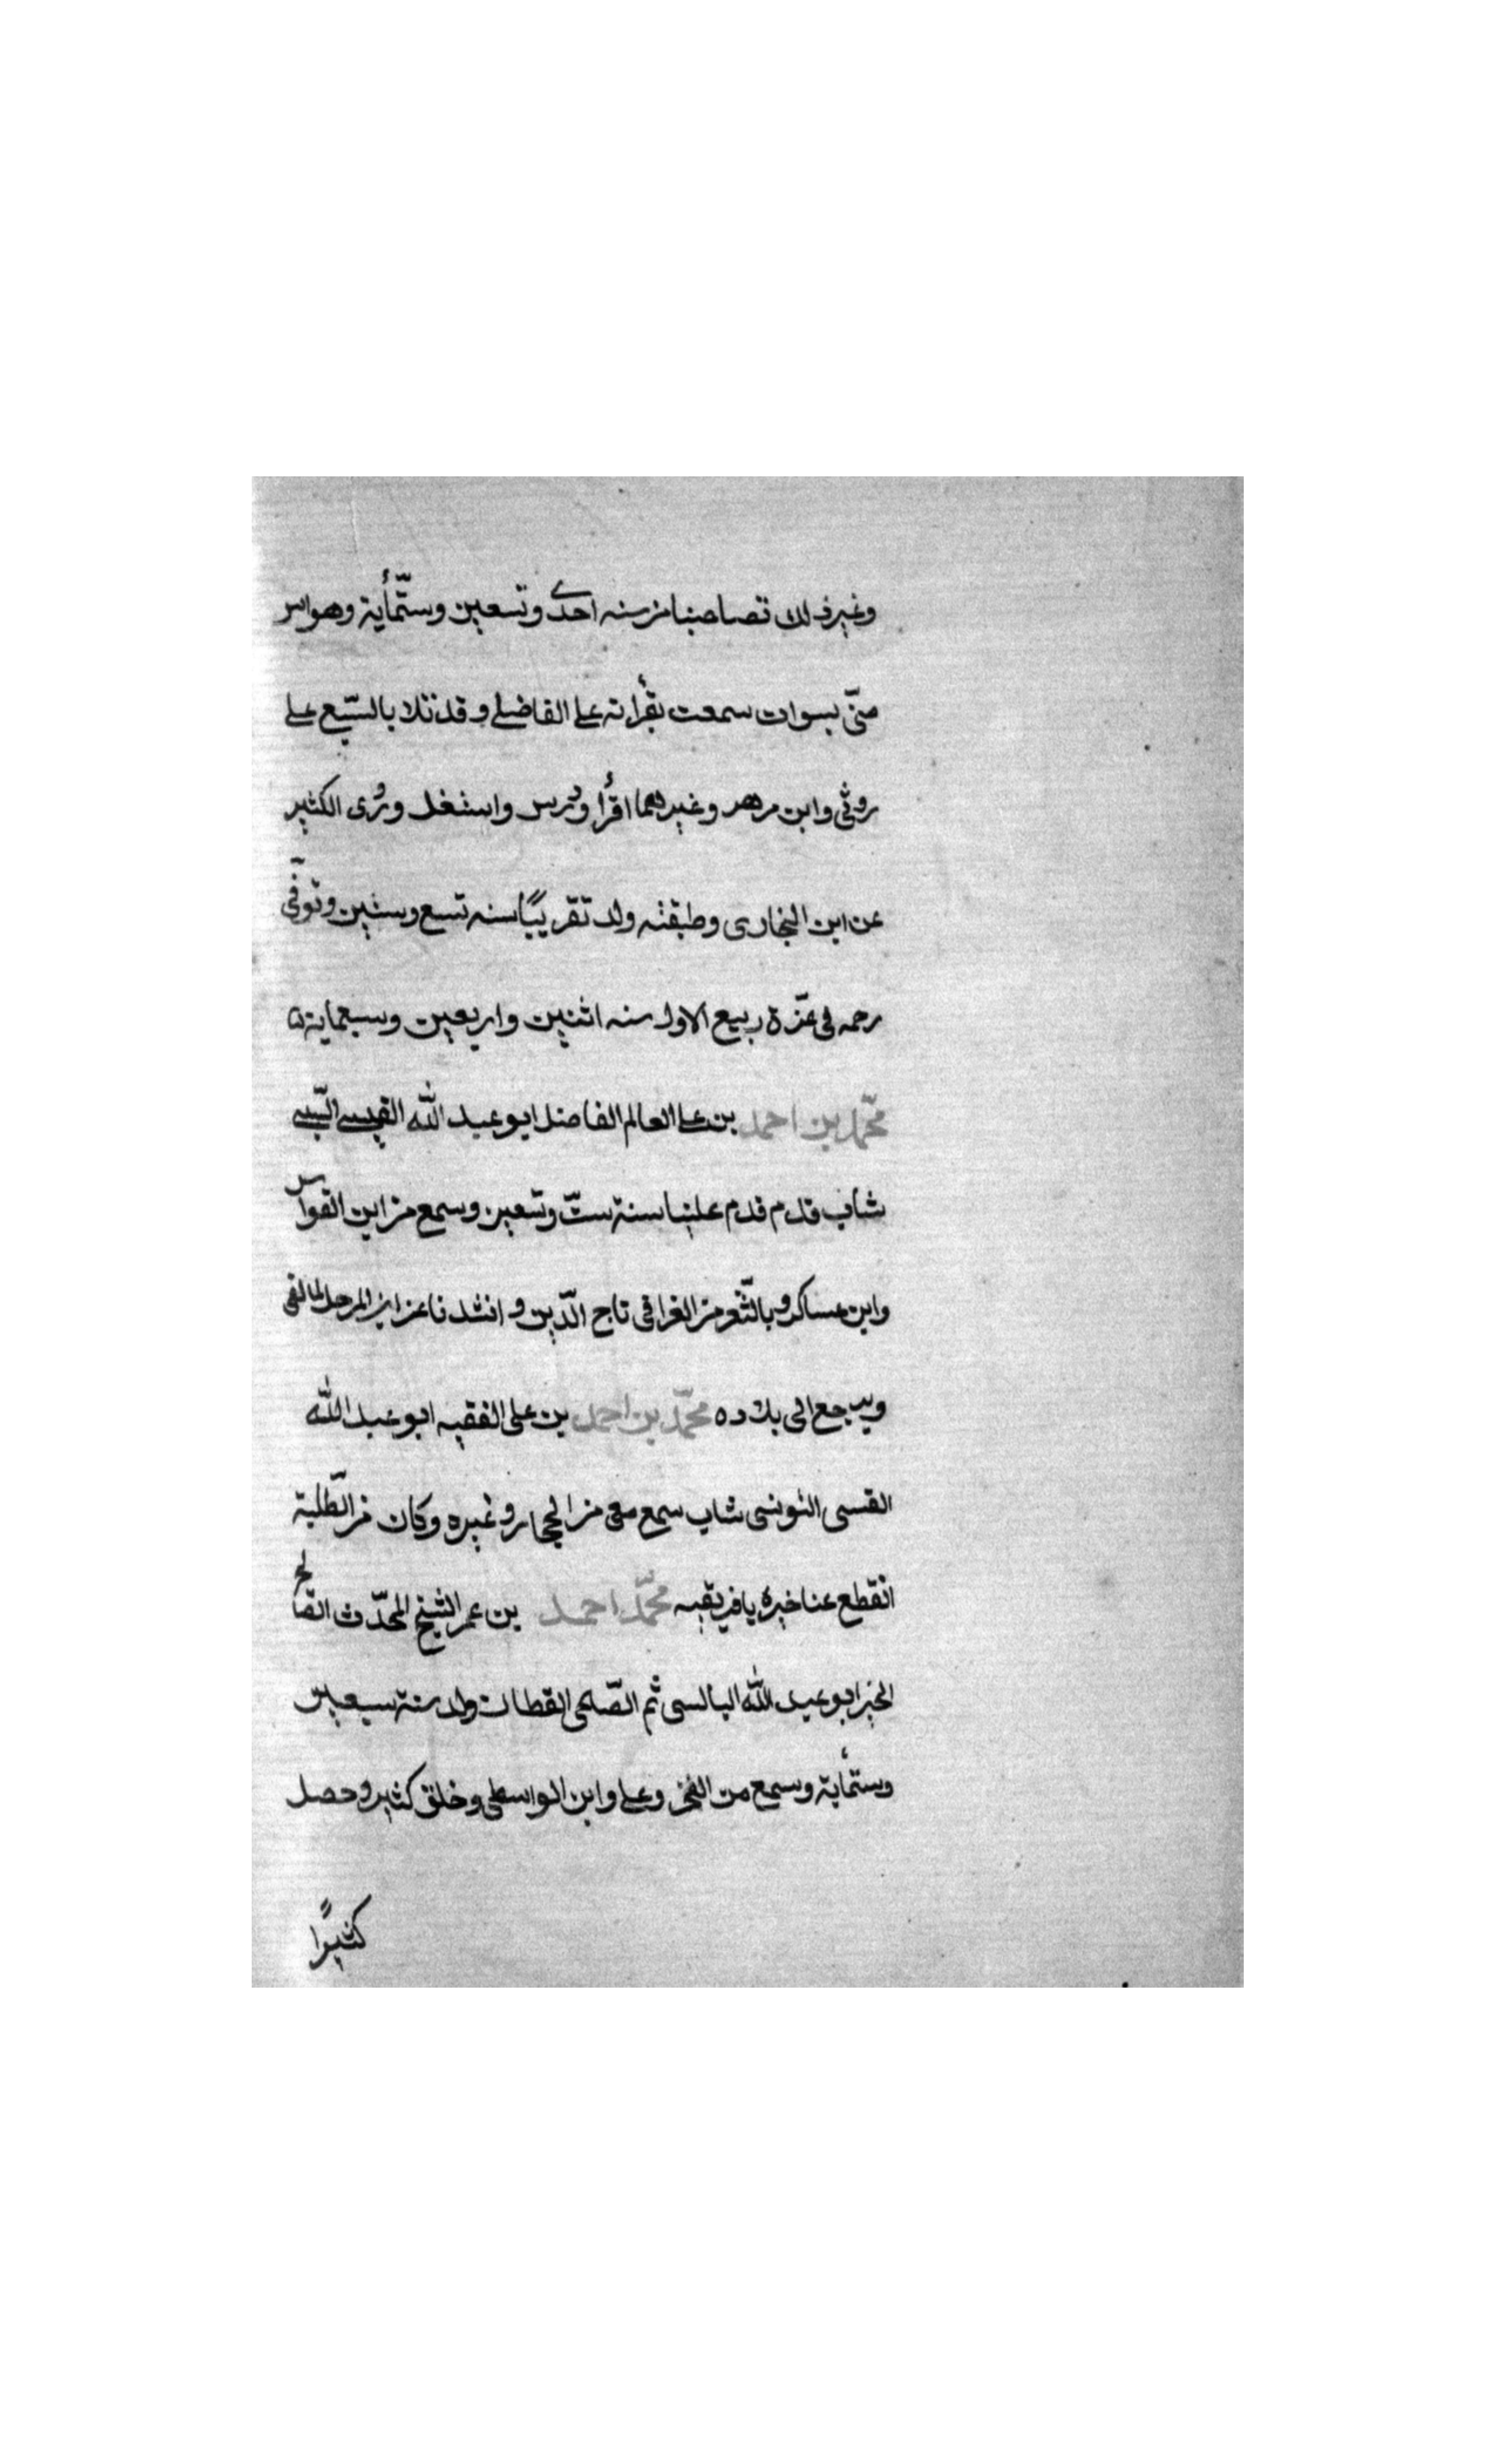 وغير ذلك تصاحبنا من سنه احدى وتسعين وستّمأية وهو اسن
منّى بسوات سمعت بقرأته على الفاضلى وقد تلا بالسّبع على
روثى وابن مزهر وغيرهما اقرأ ودرس واستغل وروى الكثير
عن ابن البخارى وطبقته ولد تقريبًا سنه تسع وستين وتوفّى
رحمه فى غرّة ربيع الاول سنه اثنين واربعين وسبعماية
محمّد بن احمد بن على العالم الفاضل ابو عبد الله القيسى
شاب قدم قدم علينا سنة ستّ وتسعين وسمع من ابن القواس
وابن عساكر وبالثّغر من الغرافى تاج الدّين وانشدنا عن ابن المرحل المالقى
ويرجع الى بلاده محمّد بن احمد بن على الفقيه ابو عبد الله
القسى التونسى شاب سمع معى من الحجار وغيره وكان من الطّلبة
انقطع عنا خبره يافريقيه محمّد احمد بن عمر الشيخ المحدّث الصالح
الخير ابو عبد الله البالسى ثم الصّالحى القطان ولد سنة سبعين
وستمأية وسمع من الفخر وعلى وابن الواسطى وخلق كثير وحصل
كثيرًا